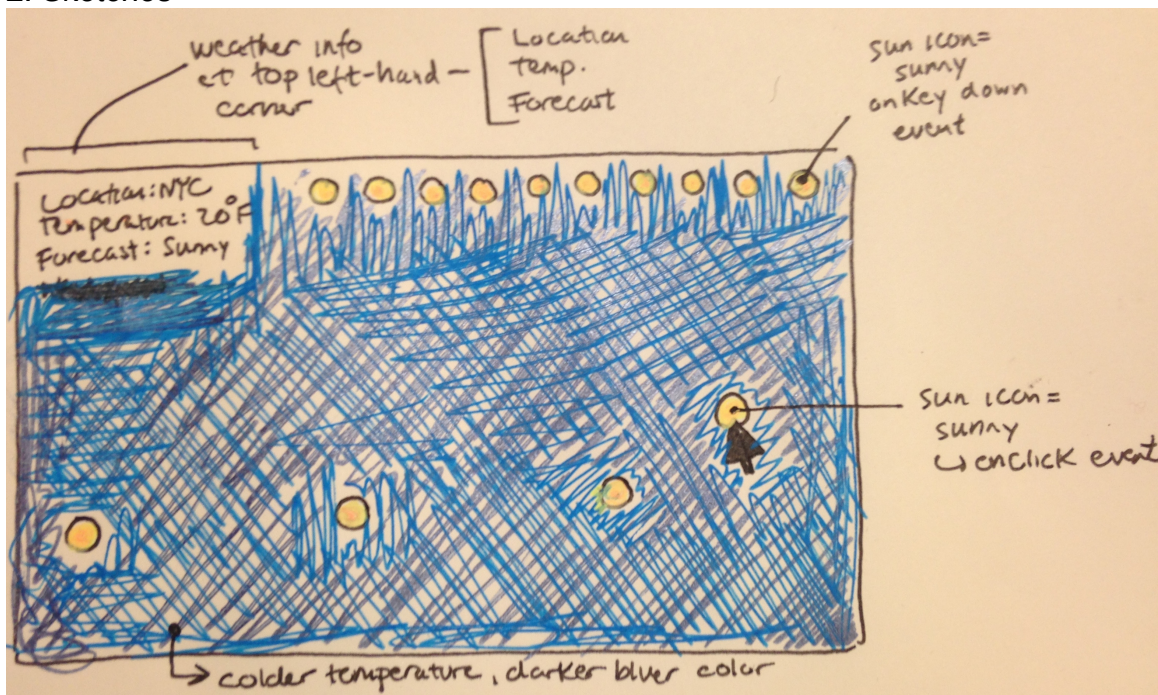 2. Sketches
weather info
at top left-hand —
corner
Location
temp.
Forecast
sun icon=
sunny
onkey down
event
Location: NYC
Temperature: 20°F
Forecast: Sunny
sun icon=
sunny
↳ onclick event
colder temperature, darker bluer color